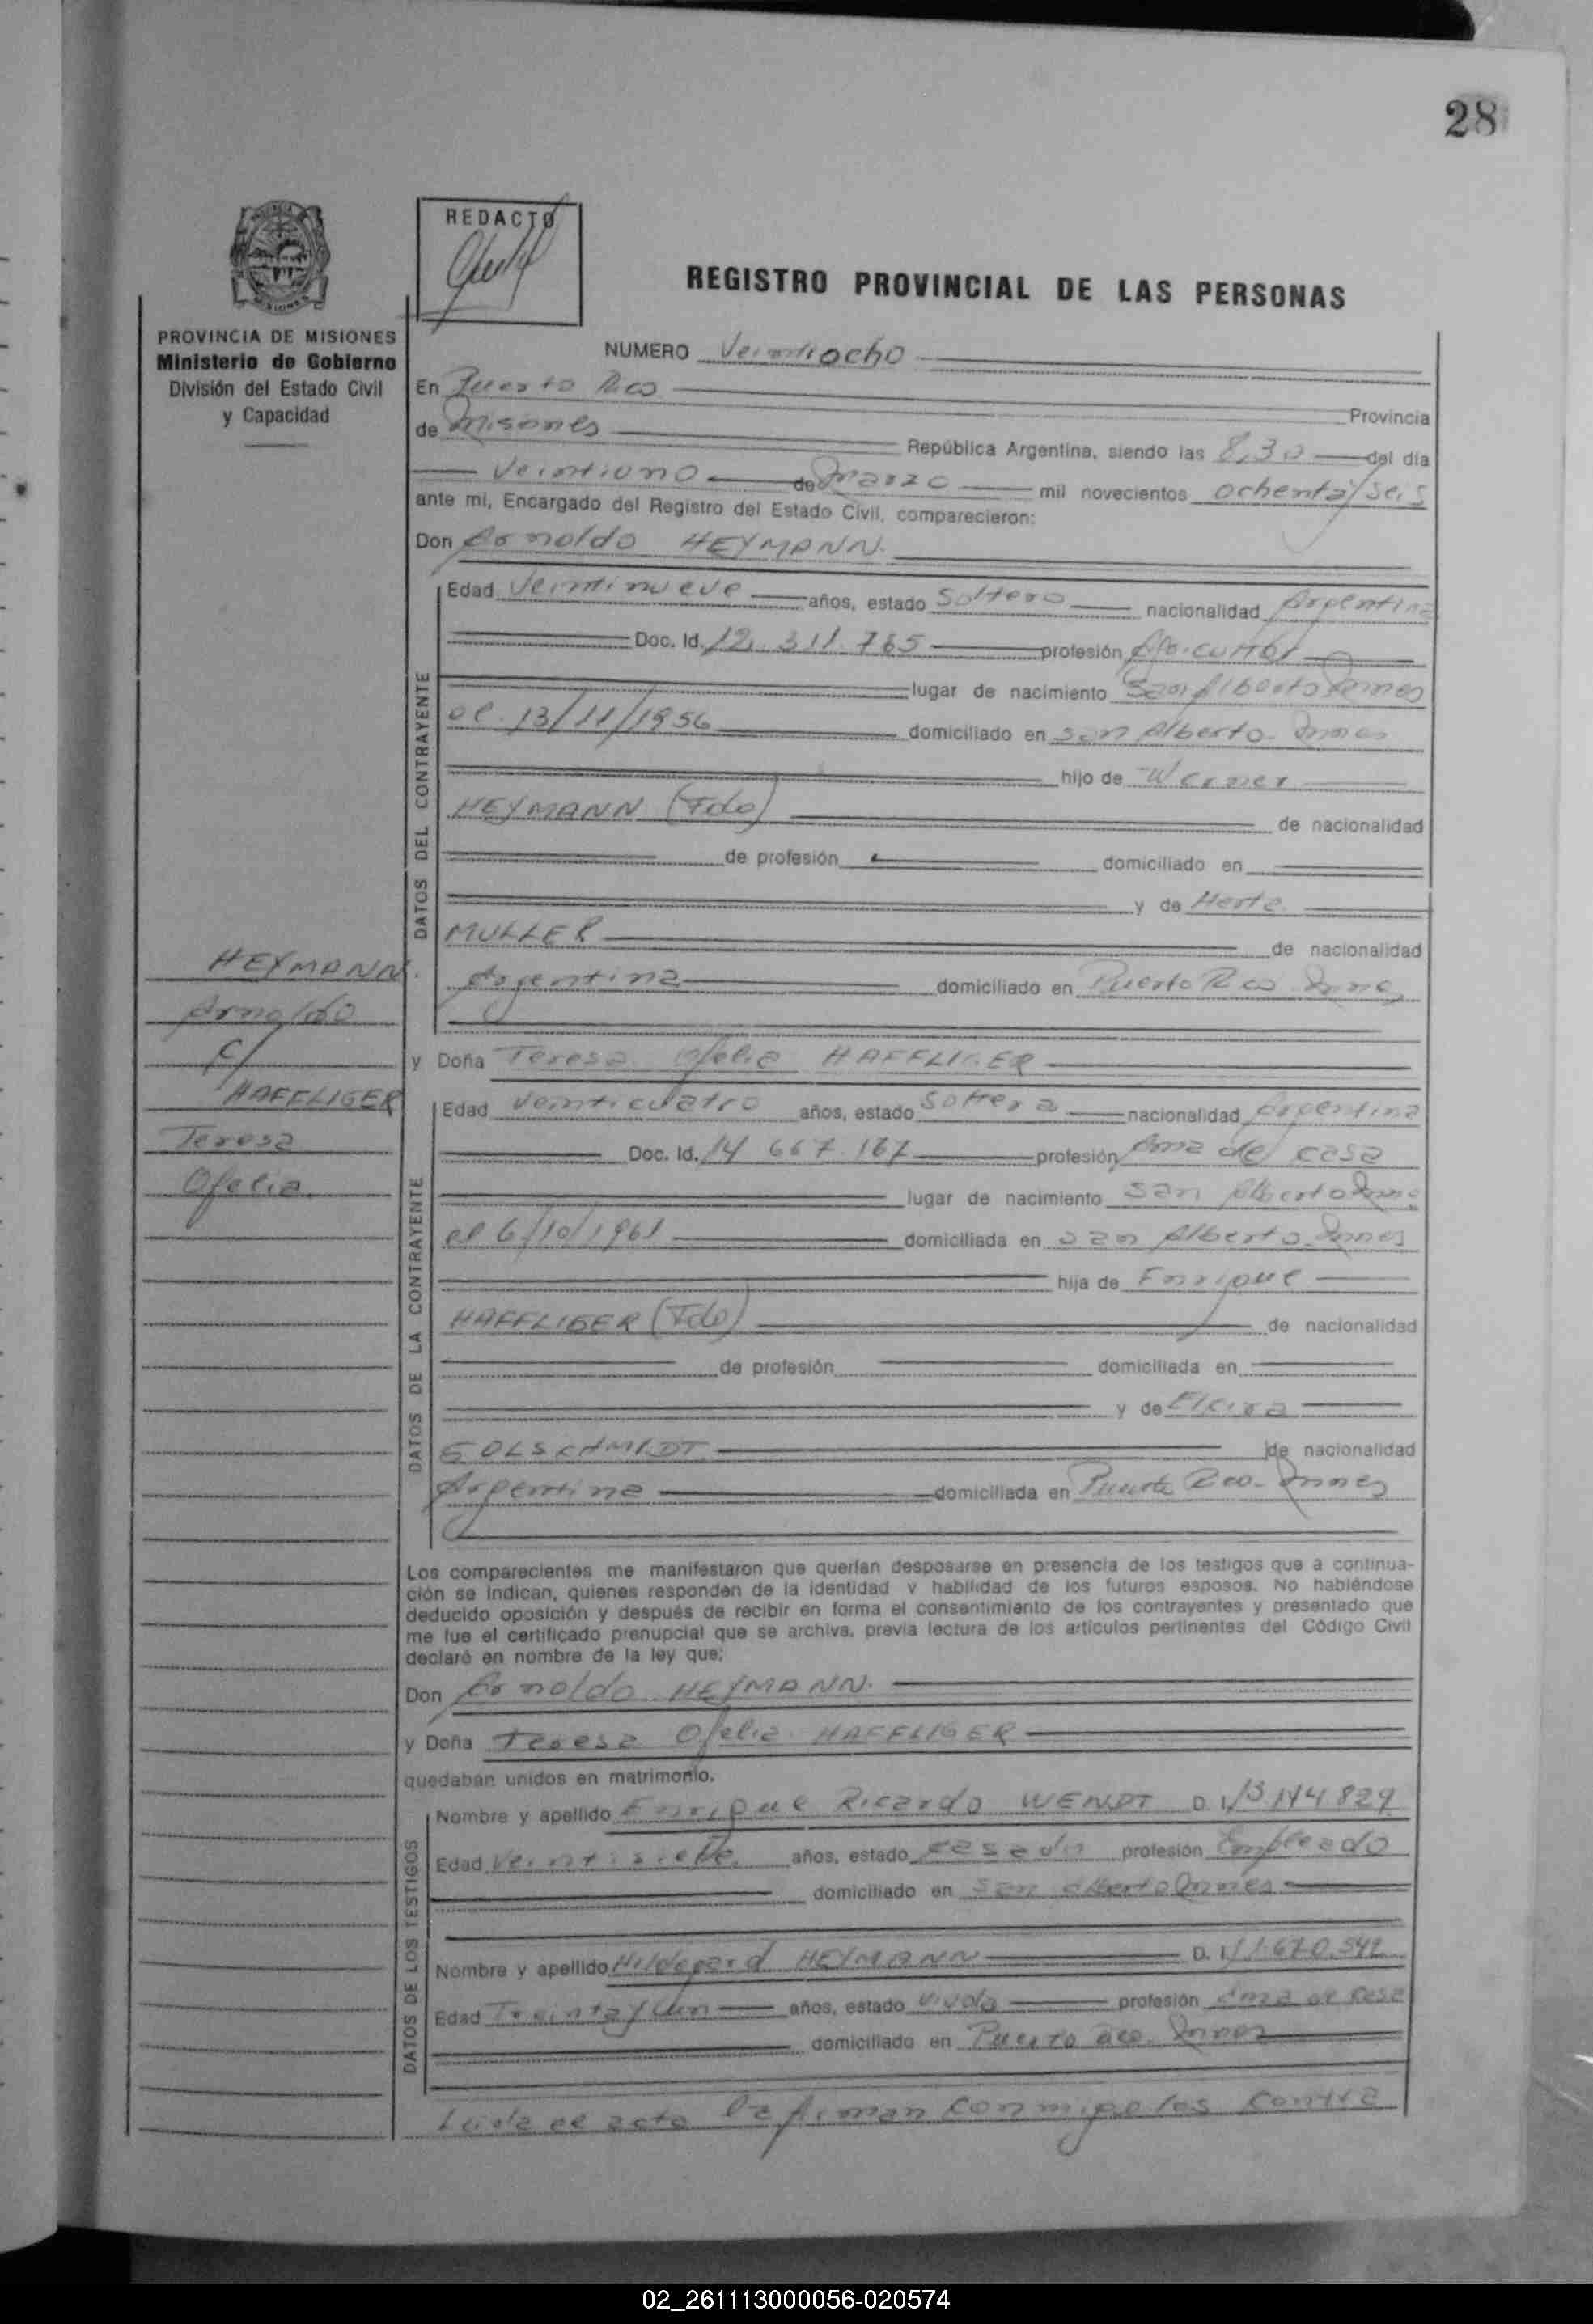 28
REDACTO
REGISTRO PROVINCIAL DE LAS PERSONAS
PROVINCIA DE MISIONES
Ministerio de Gobierno
División del Estado Civil
y Capacidad
NUMERO Veintiocho
En Puerto Rico Provincia
de Misiones República Argentina, siendo las 8,30 del día
Veintiuno de Marzo mil novecientos ochenta y seis
ante mi, Encargado del Registro del Estado Civil, comparecieron:
Don Arnoldo HEYMANN.
DATOS DEL CONTRAYENTE
Edad Veintinueve años, estado Soltero nacionalidad Argentina
Doc. Id. 12.311.765 profesión Agricultor
lugar de nacimiento San Alberto Mnes
el 13/11/1956 domiciliado en San Alberto. Mnes
hijo de Werner
HEYMANN (Fdo) de nacionalidad
de profesión domiciliado en
y de Herta
MULLER de nacionalidad
Argentina domiciliado en Puerto Rico Mnes
HEYMANN
Arnoldo
c/
HAFFLIGER
Teresa
Ofelia
y Doña Teresa Ofelia HAFFLIGER
DATOS DE LA CONTRAYENTE
Edad Veinticuatro años, estado Soltera nacionalidad Argentina
Doc. Id. 14 667.167 profesión Ama de casa
lugar de nacimiento San Alberto Mnes
el 6/10/1961 domiciliada en San Alberto Mnes
hija de Enrique
HAFFLIGER (Fdo) de nacionalidad
de profesión domiciliada en
y de Elvira
GOLSCHMIDT de nacionalidad
Argentina domiciliada en Puerto Rico. Mnes
Los comparecientes me manifestaron que querían desposarse en presencia de los testigos que a continua-
ción se indican, quienes responden de la identidad y habilidad de los futuros esposos. No habiéndose
deducido oposición y después de recibir en forma el consentimiento de los contrayentes y presentado que
me fue el certificado prenupcial que se archiva, previa lectura de los artículos pertinentes del Código Civil
declaré en nombre de la ley que:
Don Arnoldo HEYMANN.
y Doña Teresa Ofelia HAFFLIGER
quedaban unidos en matrimonio.
DATOS DE LOS TESTIGOS
Nombre y apellido Enrique Ricardo WENDT D.I. 13 144 829
Edad Veintisiete años, estado casado profesión Empleado
domiciliado en San Alberto Mnes
Nombre y apellido Hildegard HEYMANN D.I. 11.670.542
Edad Treinta y un años, estado viuda profesión Ama de casa
domiciliado en Puerto Rco. Mnes
Leida el acta la firman conmigo los contra
02_261113000056-020574